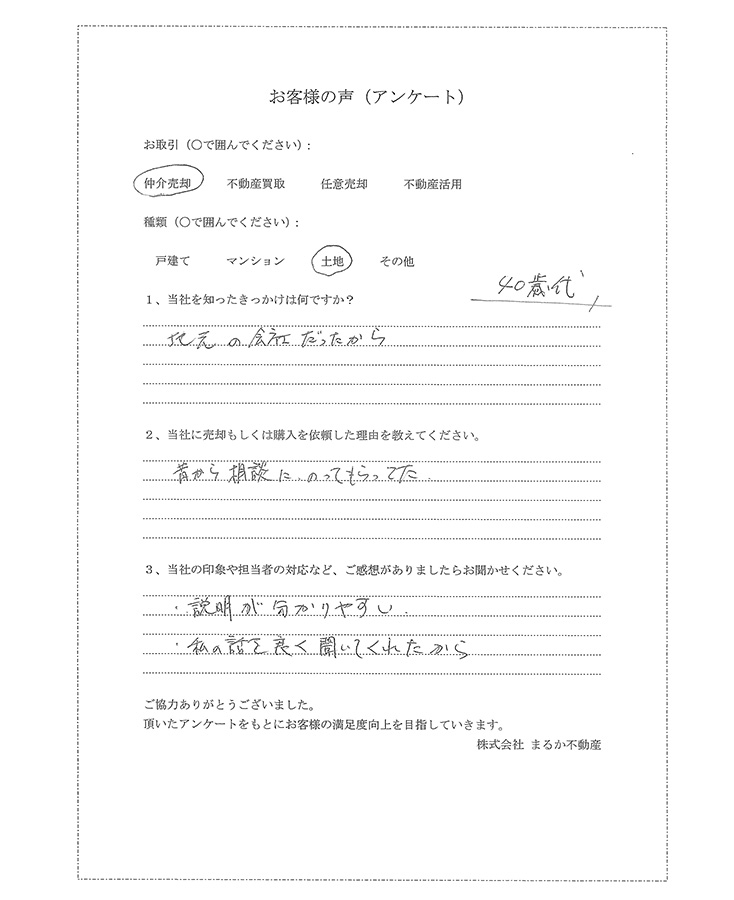 お客様の声（アンケート）
お取引（〇で囲んでください）:
仲介売却 不動産買取 任意売却 不動産活用
種類（〇で囲んでください）:
戸建て マンション 土地 その他
40歳代
1、当社を知ったきっかけは何ですか？
地元の会社だったから
2、当社に売却もしくは購入を依頼した理由を教えてください。
昔から相談に、のってもらってた.
3、当社の印象や担当者の対応など、ご感想がありましたらお聞かせください。
・説明が分かりやすい.
・私の話を良く聞いてくれたから
ご協力ありがとうございました。
頂いたアンケートをもとにお客様の満足度向上を目指していきます。
株式会社 まるか不動産